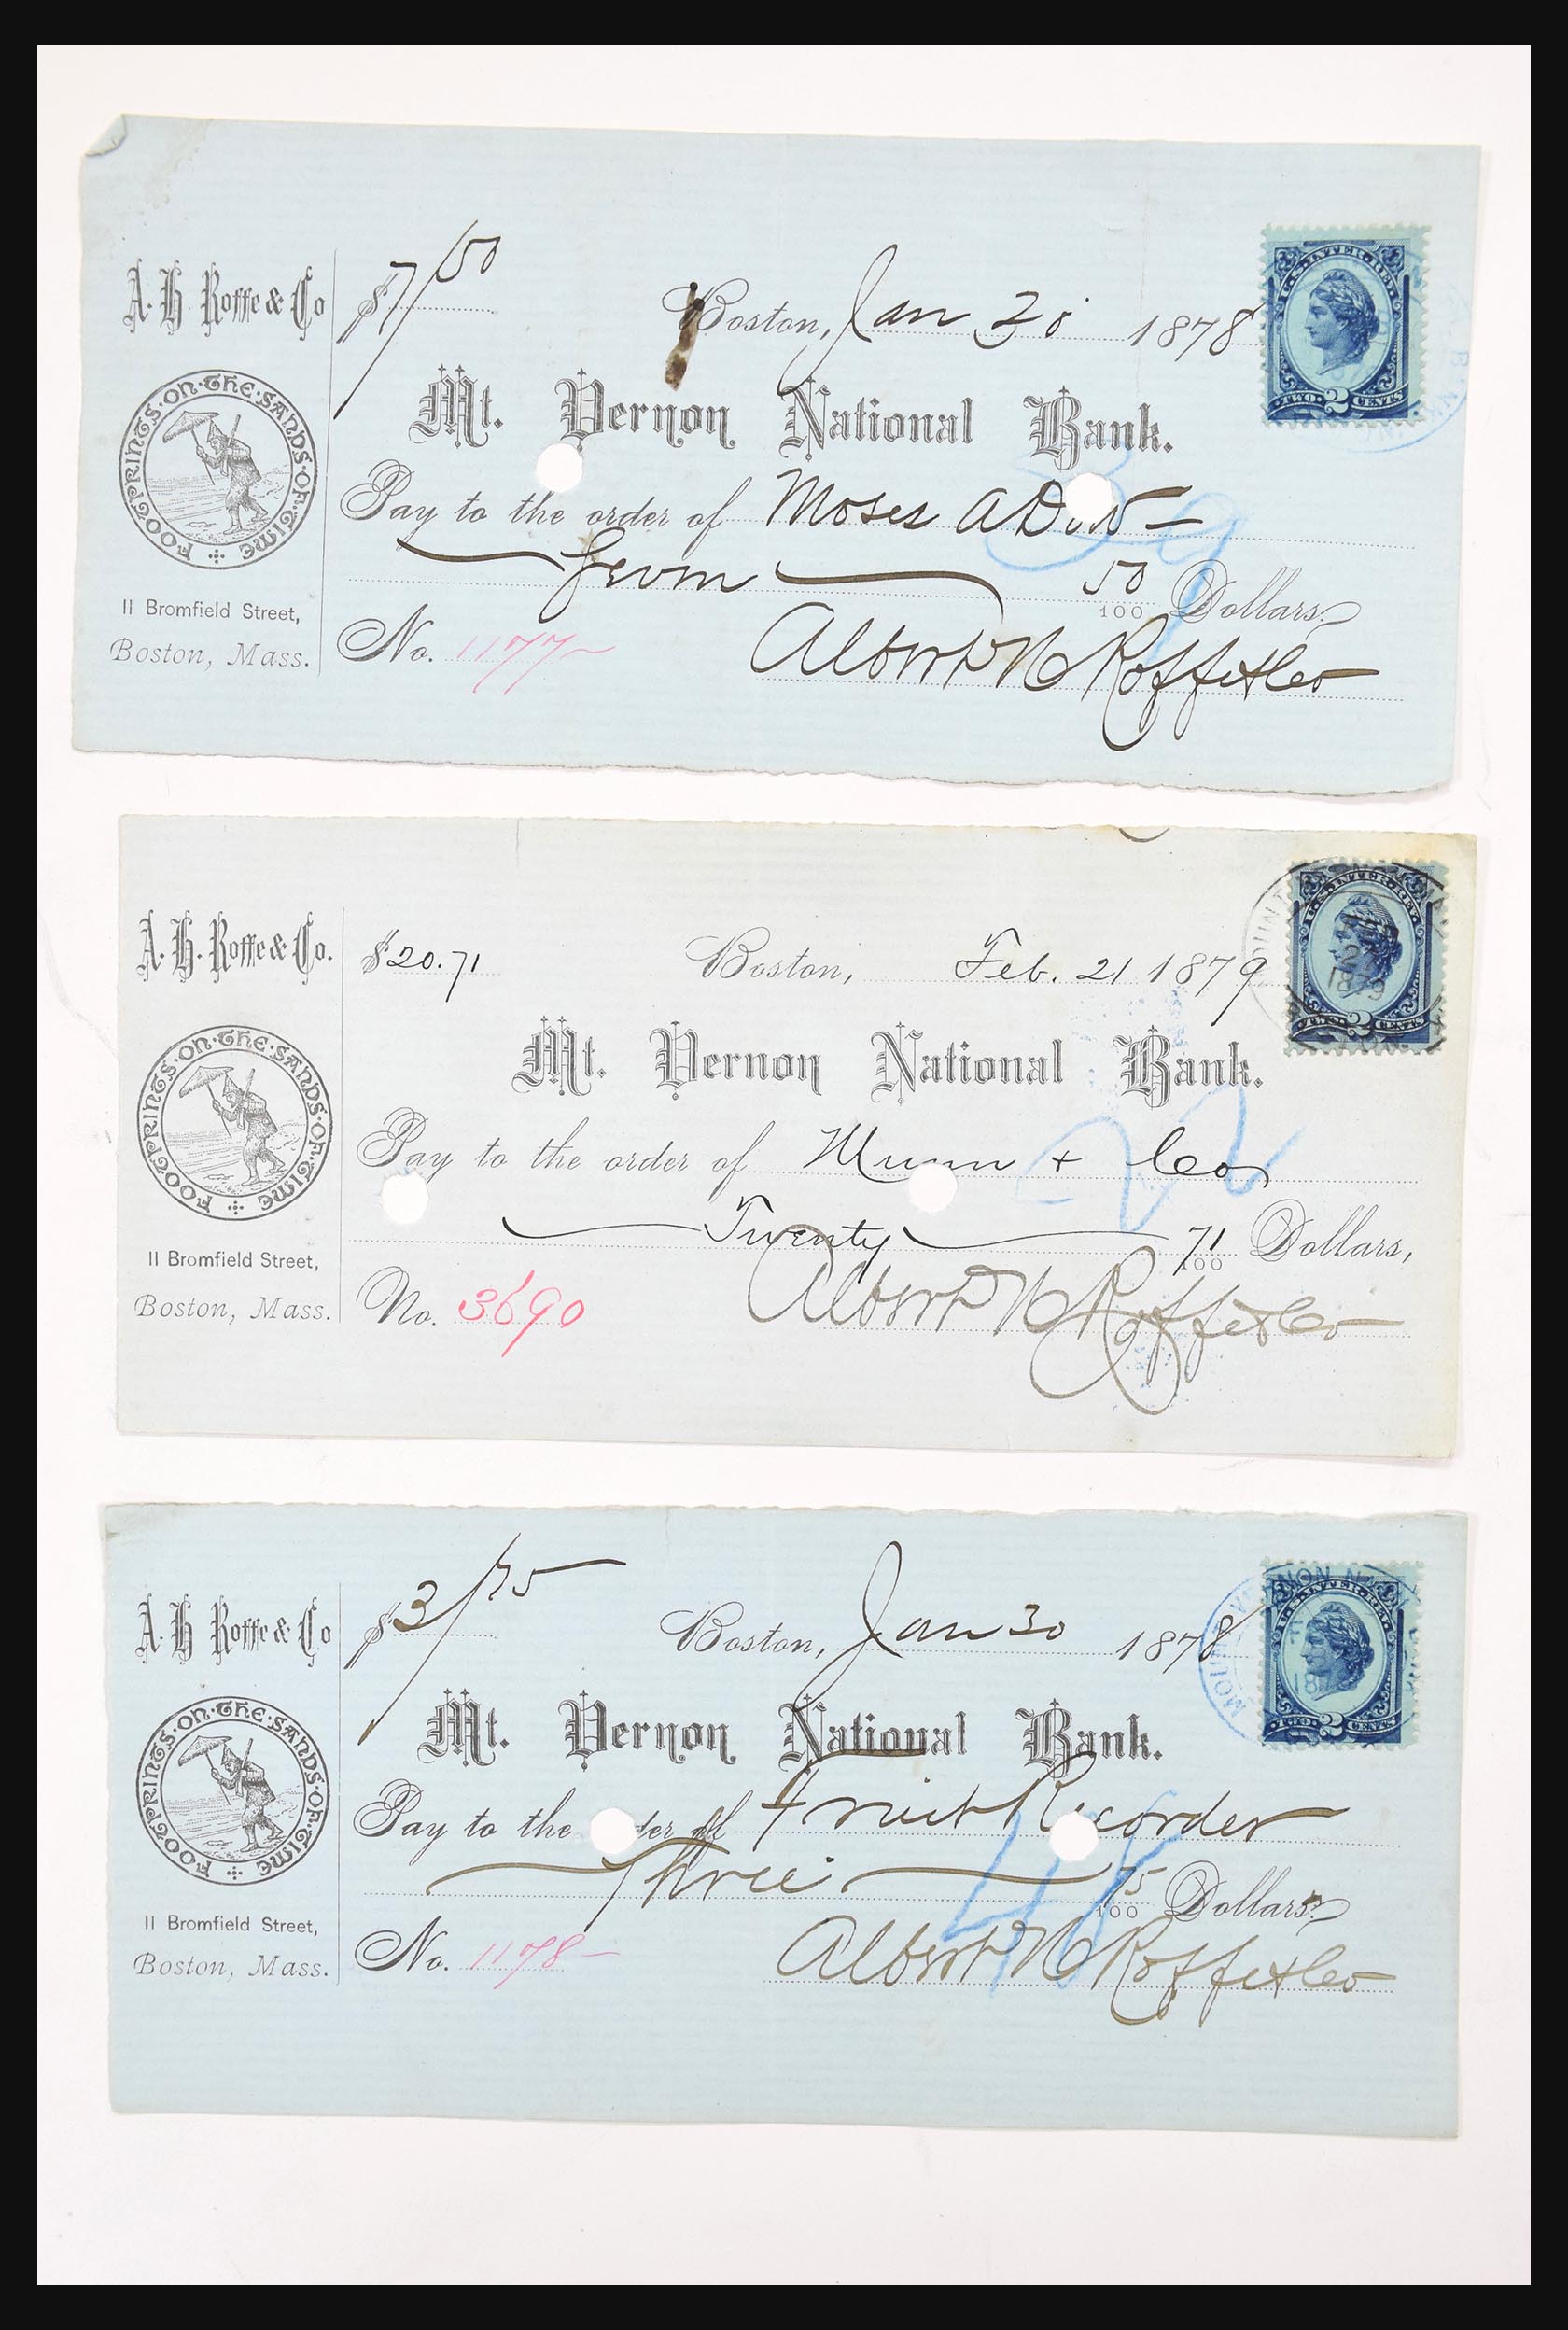 A. H. Roffe & Co
FOOTPRINTS·ON·THE·SANDS·OF·TIME
11 Bromfield Street,
Boston, Mass.
$7/50
Boston, Jan 30 1878
U.S. INTER. REV.
TWO 2 CENTS
Mt. Vernon National Bank.
Pay to the order of Moses A Dow
Seven 50/100 Dollars.
No. 1177
Albert H Roffe & Co
39
A. H. Roffe & Co.
FOOTPRINTS·ON·THE·SANDS·OF·TIME
11 Bromfield Street,
Boston, Mass.
$20.71
Boston, Feb. 21 1879
U.S. INTER. REV.
TWO 2 CENTS
1879
Mt. Vernon National Bank.
Pay to the order of Munn & Co
Twenty 71/100 Dollars,
No. 3690
Albert H Roffe & Co
22
A. H. Roffe & Co
FOOTPRINTS·ON·THE·SANDS·OF·TIME
11 Bromfield Street,
Boston, Mass.
$3/75
Boston, Jan 30 1878
MOUNT VERNON
U.S. INTER. REV.
TWO 2 CENTS
Mt. Vernon National Bank.
Pay to the order of Fruit Recorder
Three 75/100 Dollars.
No. 1178
Albert H Roffe & Co